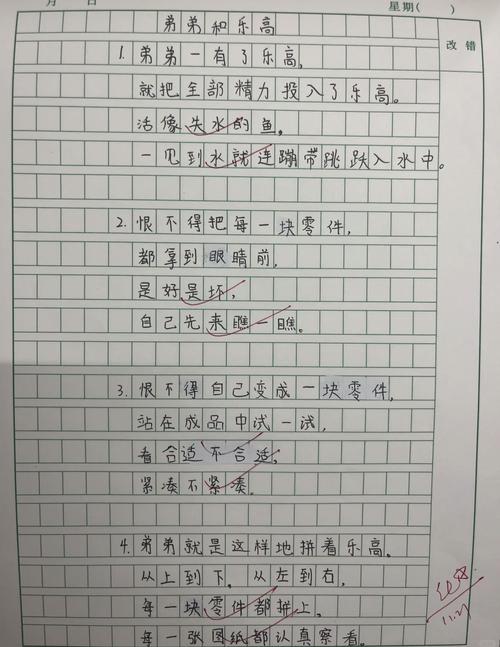 月 日 星期( )
改错
弟弟和乐高
1. 弟弟一有了乐高,
就把全部精力投入了乐高。
活像失水的鱼。
一见到水就连蹦带跳跌入水中。
2. 恨不得把每一块零件,
都拿到眼睛前,
是好是坏,
自己先来瞧一瞧。
3. 恨不得自己变成一块零件,
站在成品中试一试,
看合适不合适,
紧凑不紧凑。
4. 弟弟就是这样地拼着乐高。
从上到下。从左到右,
每一块零件都拼上。
每一张图纸都认真察看。
11.27